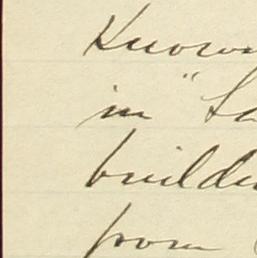 Known
in "La
buildin
from